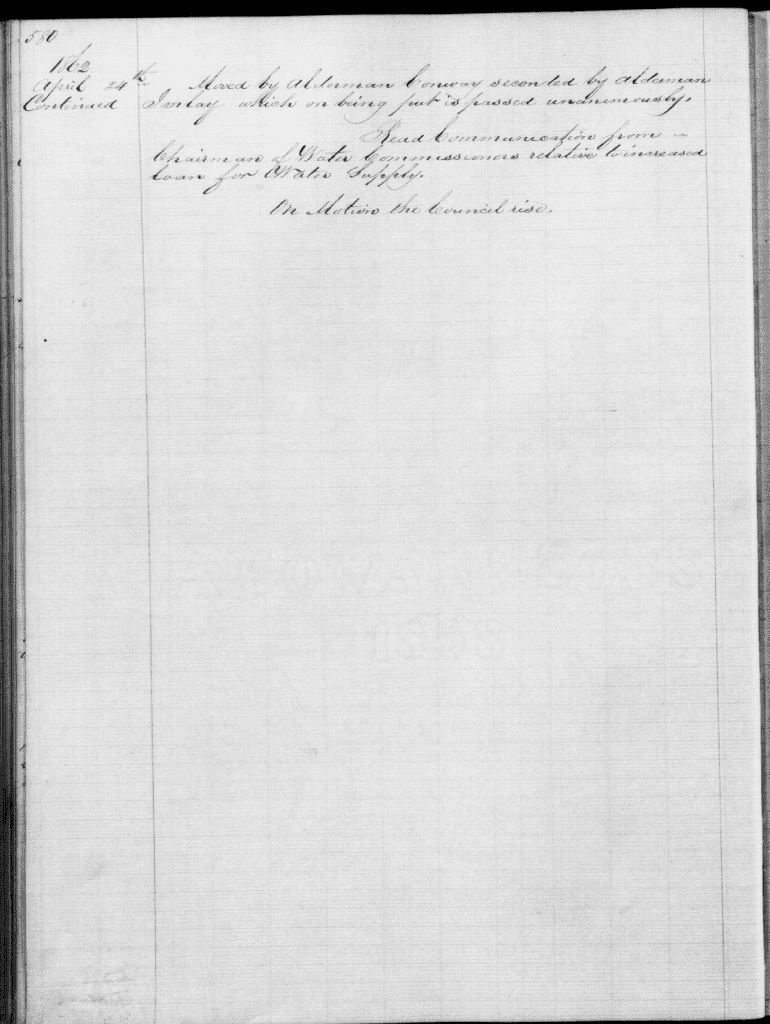 580
1862
April 24th Moved by Alderman Conway seconded by Alderman
Continued Imlay which on being put is passed unanimously.
Read Communication from
Chairman of Water Commissioners relative to increased
loan for Water Supply.
On Motion the Council rise.